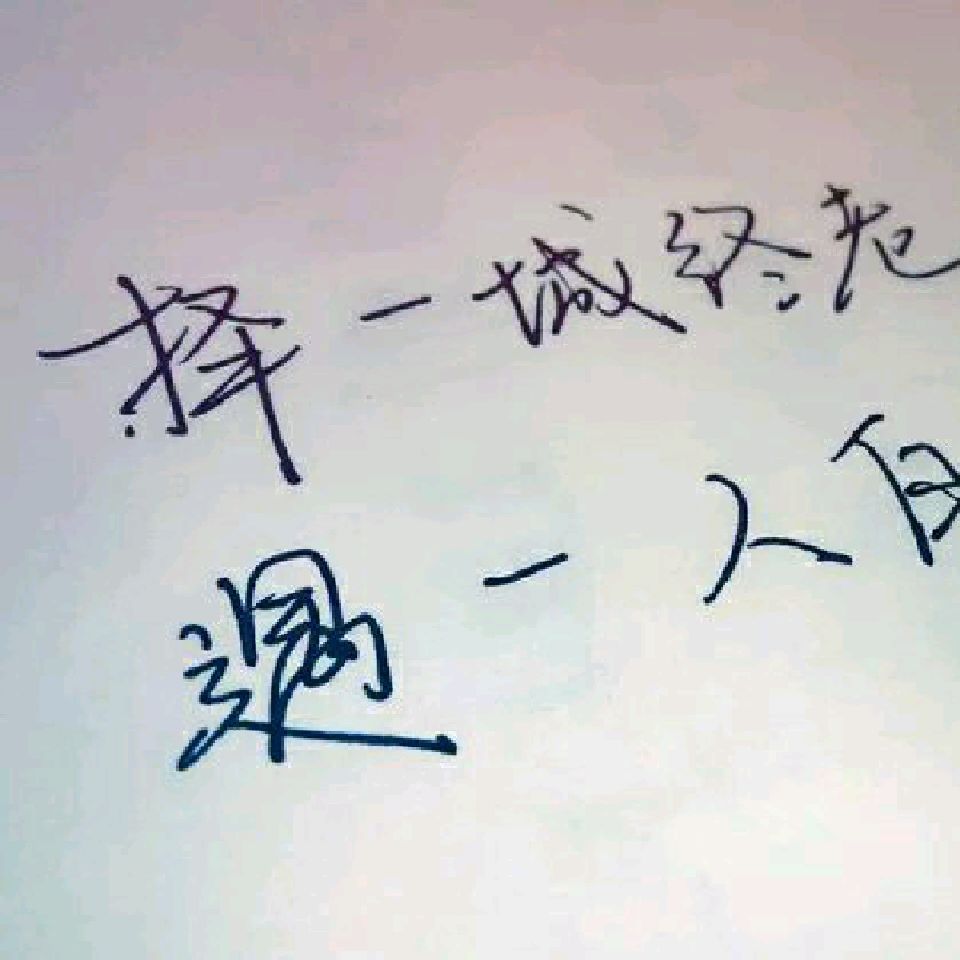 择一城终老
遇一人白